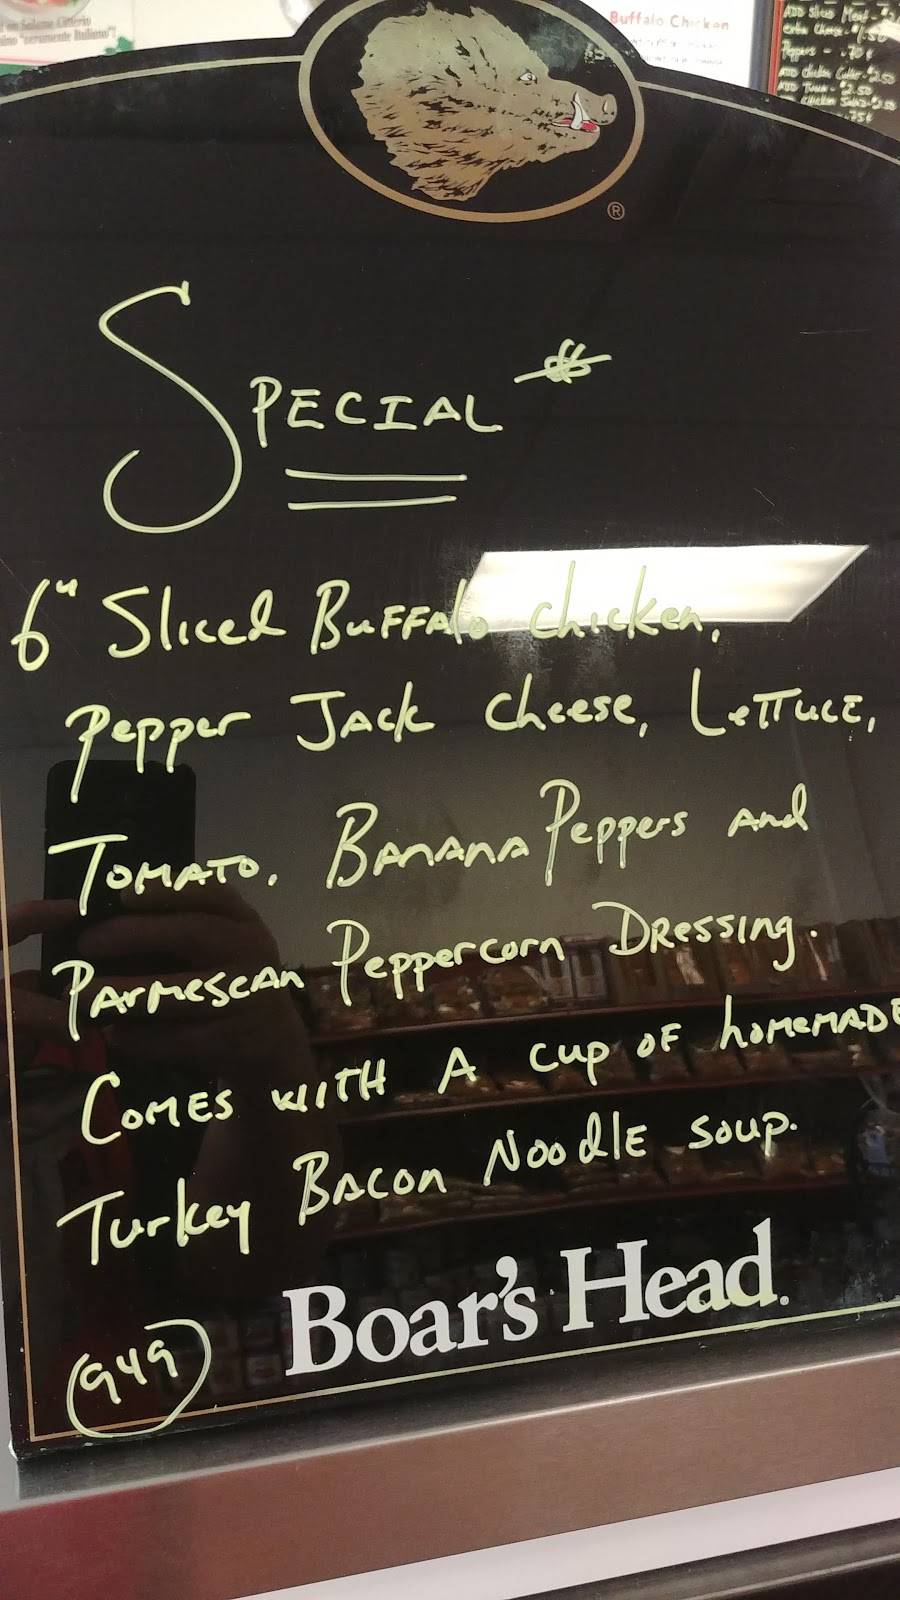 Buffalo Chicken
ADD Sliced Meat
extra Cheese
Peppers - .70¢
ADD chicken Cutlet - $2.50
ADD Tuna - $2.50
.75¢
®
SPECIAL
6" Sliced Buffalo chicken,
Pepper Jack Cheese, Lettuce,
Tomato, Banana Peppers and
Parmescan Peppercorn Dressing.
Comes with a cup of homemade
Turkey Bacon Noodle soup.
Boar's Head.
949